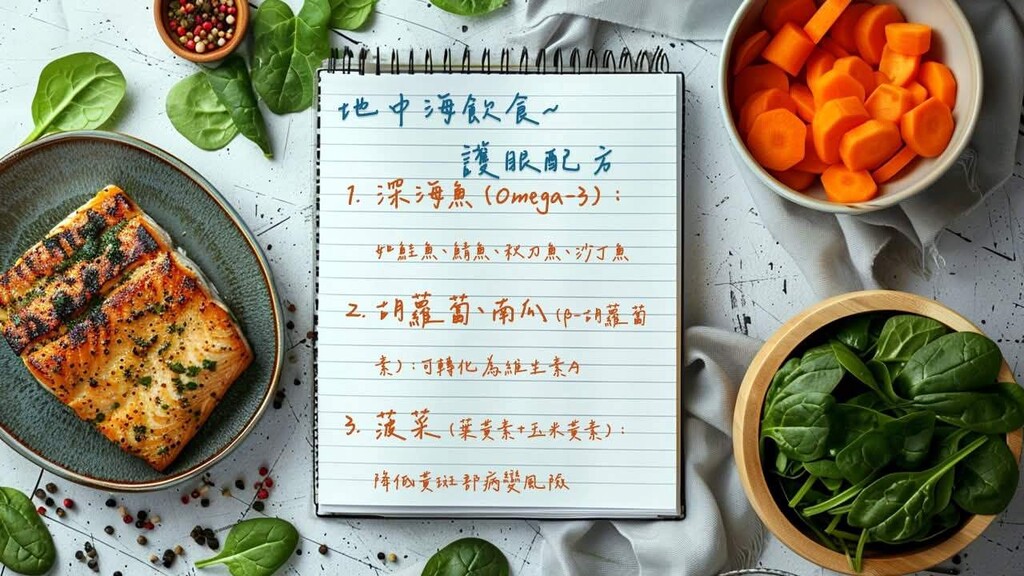 地中海飲食~
護眼配方
1. 深海魚(Omega-3):
如鮭魚、鯖魚、秋刀魚、沙丁魚
2. 胡蘿蔔、南瓜(β-胡蘿蔔
素):可轉化為維生素A
3. 菠菜(葉黃素+玉米黃素):
降低黃斑部病變風險